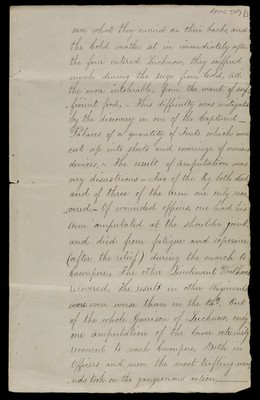 save what they carried on their backs, and
the Cold weather set in immediately after
the force entered Lucknow, they suffered
much during the siege from Cold, all
the more intolerable from the want of suf
ficient food, - This difficulty was mitigated
by the discovery in one of the captured
Palaces of a quantity of Tents which were
cut up into shirts and coverings of various
devices. - The result of Amputation was
very disastrous - Two of the leg both died
and of three of the Arm one only reco
vered - Of wounded officers, one had his
Arm amputated at the shoulder joint
and died from fatigue and exposure
(after the relief) during the march to
Cawnpore, The other Lieutenant
recovered. The result in other Regiments
were even worse than in the Out
of the whole Garrison of Lucknow, only
one amputation of the lower extremity
recovered to reach Cawnpore, Both in
Officers and men the most trifling wou
nds took on the gangrenous action